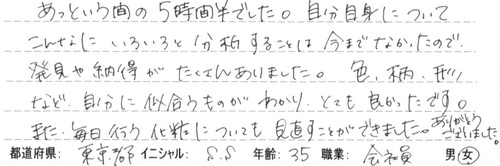 あっという間の5時間半でした。自分自身について
こんなにいろいろと分析することは今までなかったので、
発見や納得がたくさんありました。色、柄、形
など、自分に似合うものがわかり、とても良かったです。
また、毎日行う化粧についても見直すことができました。ありがとうございました。
都道府県: 東京都 イニシャル: S.S 年齢: 35 職業: 会社員 男・女